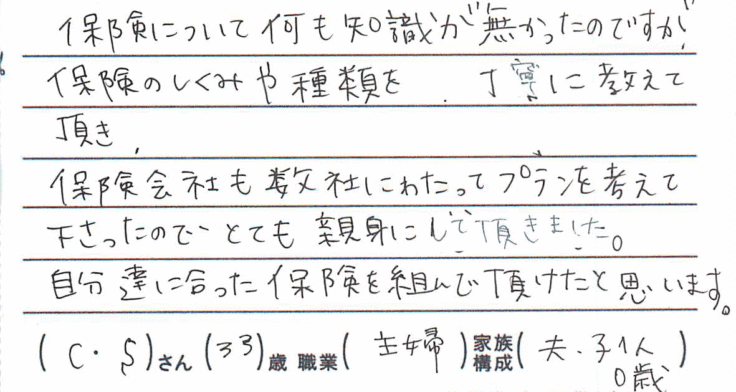 保険について何も知識が無かったのですが
保険のしくみや種類を、丁寧に教えて
頂き、
保険会社も数社にわたってプランを考えて
下さったので、とても親身にして頂きました。
自分達に合った保険を組んで頂けたと思います。
(C・S)さん(33)歳 職業(主婦)家族構成(夫・子1人 0歳)